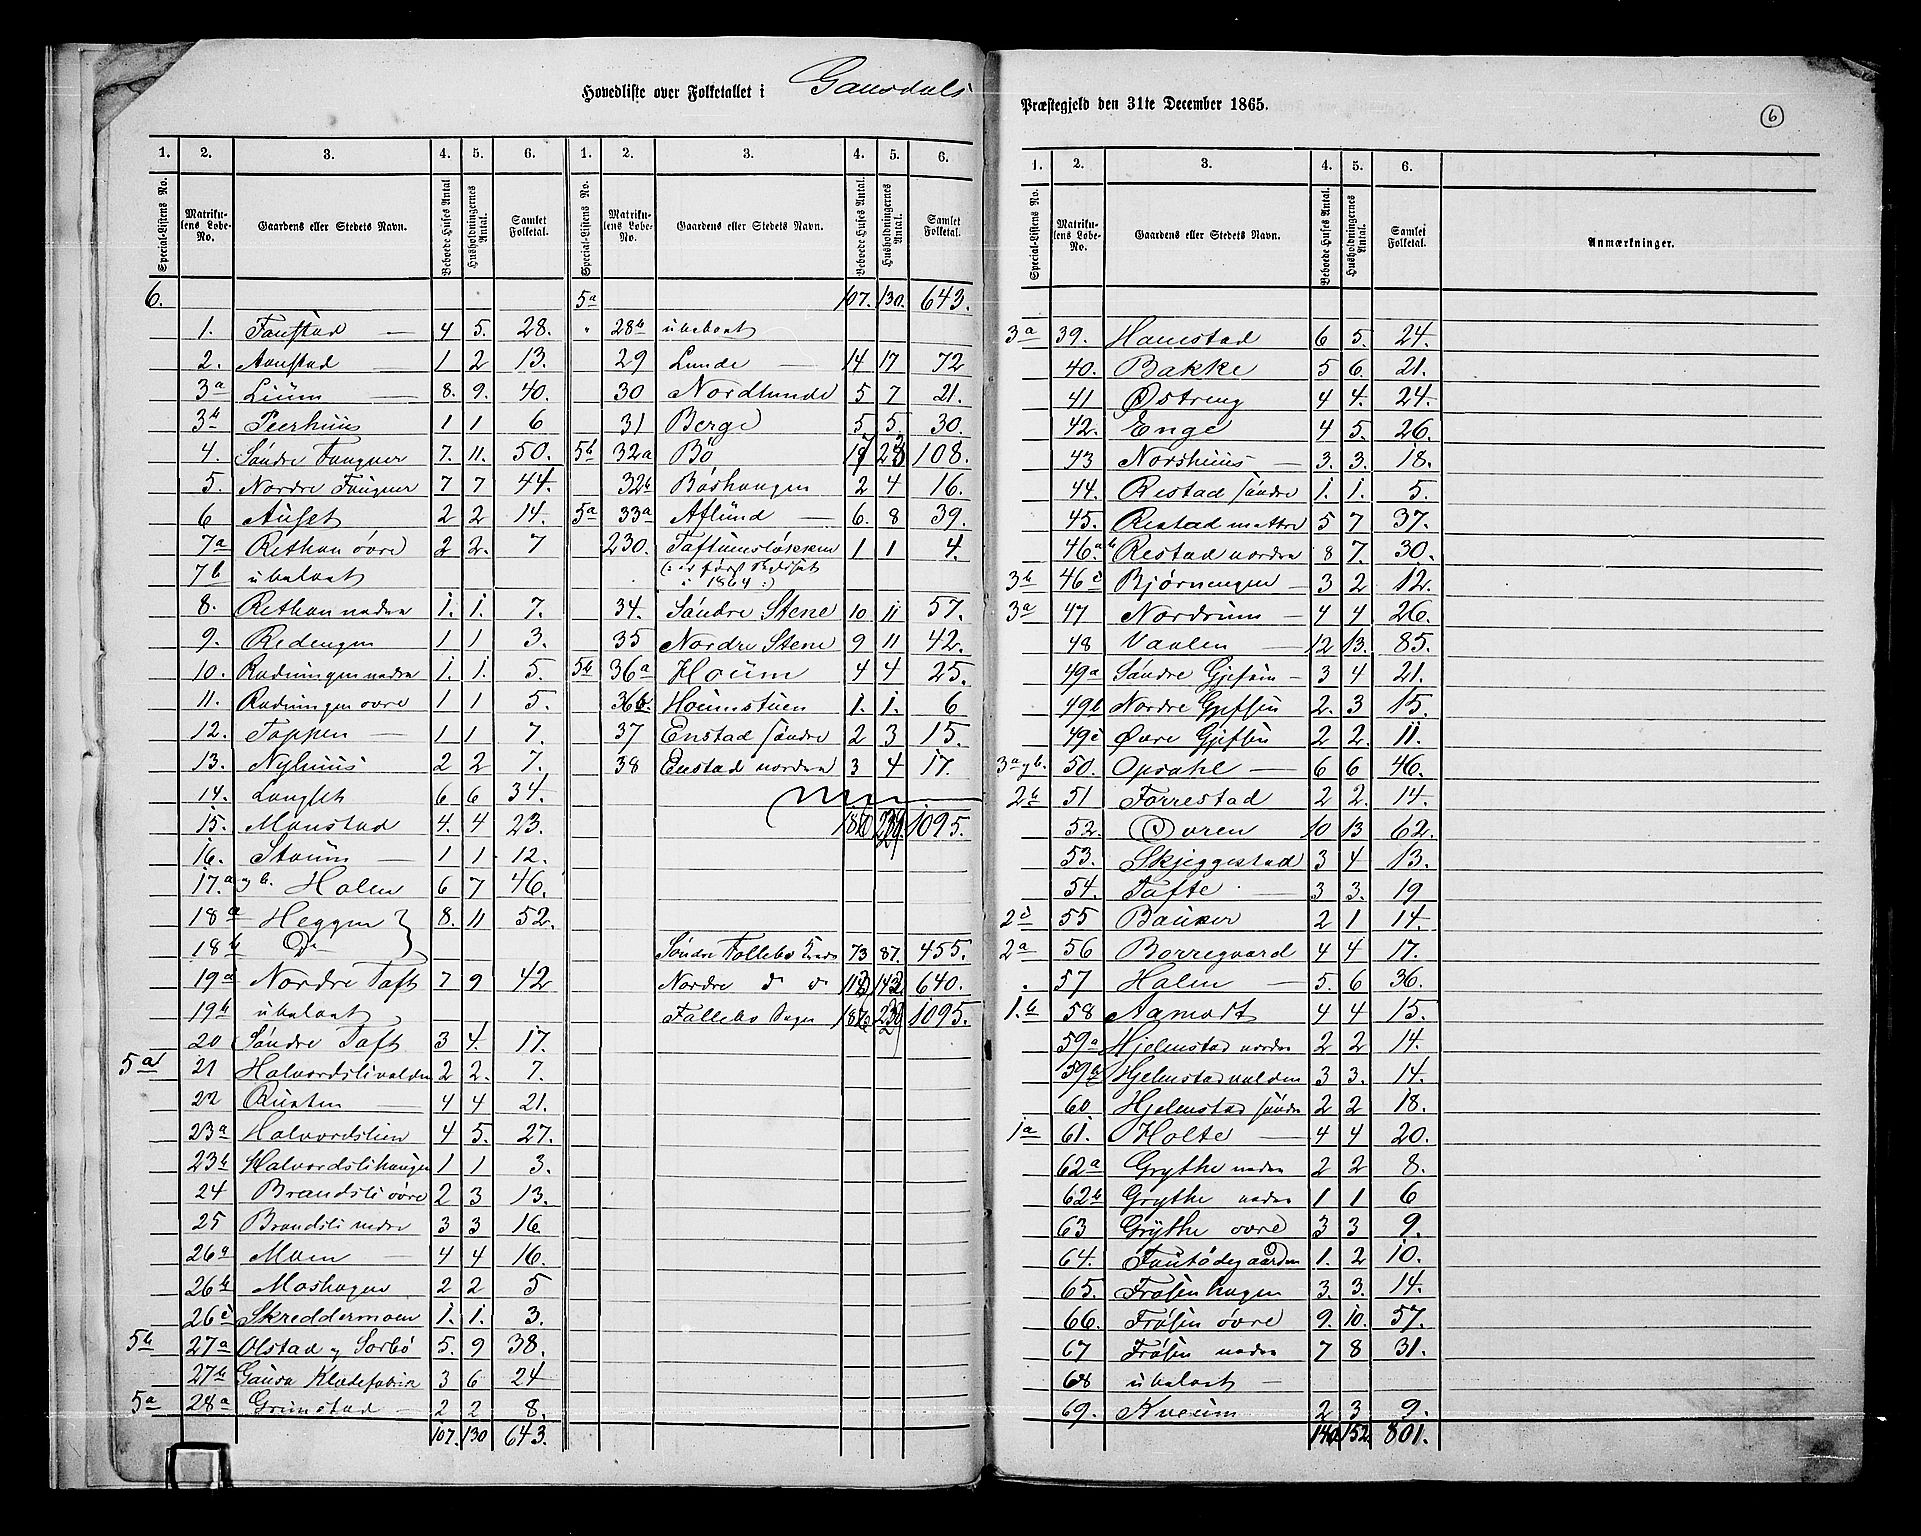 Hovedliste over Folketallet i Gausdals
Præstegjeld den 31te December 1865.
6
1. 2. 3. 4. 5. 6. 1. 2. 3. 4. 5. 6.
Special-Listens No. Matrikulens Løbe-No. Gaardens eller Stedets Navn. Beboede Huses Antal Husholdningernes Antal. Samlet Folketal. Special-Listens No. Matrikulens Løbe-No. Gaardens eller Stedets Navn. Beboede Huses Antal. Husholdningernes Antal. Samlet Folketal.
6.
1. Faustad — 4 5. 28.
2. Aanstad 1 2 13.
3a Liium — 8. 9. 40.
3b Peerhuus 1 1 6
4. Søndre Faugner 7. 11. 50.
5. Nordre Faugner 7 7 44.
6 Auset 2 2 14.
7a Rethan øvre 2 2. 7
7b ubeboet
8. Rethan nedre 1. 1. 7.
9. Redengen 1 1 3.
10. Rudningen nedre 1. 1. 5.
11. Rudningen øvre 1 1 5.
12. Toppen — 1 1 7.
13. Nyhuus 2 2 7.
14. Langset 6 6 34.
15. Manstad 4. 4 23.
16. Stoum — 1 1. 12.
17.a og b. Holen 6 7 46.
18a Heggen 8. 11 52.
18b Do
19a Nordre Toft 7 9 42
19b ubeboet
20 Søndre Toft 3 4. 17.
5a 21 Halvordslivolden 2 2. 7.
22 Rusten — 4 4 21.
23a Halvordslien 4 5. 27.
23b Halvordslihaugen 1 1 3.
24 Brandsli øvre 2 3 13.
25 Brandsli nedre 3 3 16
26a Moen — 4 4 16.
26b Moshagen 2 2 5
26c Skreddermoen 1. 1. 3.
5b 27a Olstad og Sorbø 5. 9 38.
27b Gausa Klædefabrik 3 6 24
5a 28a Grimstad — 2 2 8.
107. 130 643.
5a 107. 130. 643.
" 28b ubeboet
29 Lunde — 14 17 72
30 Nordlunde 5 7 21.
31 Berge 5 5. 30.
5b 32a Bø 108.
32b Bøshaugen 2 4 16.
5a 33a Aflund — 6. 8 39.
230. Toftumsløkken 1 1 4.
34. Søndre Stene 10 11 57.
35 Nordre Stene 9 11 42.
5b 36a Houm 4 4 25.
36b. Houmstuen 1. 1. 6
37 Enstad søndre 2 3 15.
38 Enstad nordre 3 4 17.
1095.
Søndre Follebo 73 87. 455.
Nordre do do 640.
Follebo Sogn 1095.
1. 2. 3. 4. 5. 6.
Special-Listens No. Matrikulens Løbe-No. Gaardens eller Stedets Navn. Beboede Huses Antal. Husholdningernes Antal. Samlet Folketal. Anmærkninger.
3a 39. Hamstad 6 5. 24.
40. Bakke 5 6. 21.
41 Østreng 4 4. 24.
42. Enge 4 5. 26.
43 Norshuus — 3. 3. 18.
44. Restad søndre 1. 1. 5.
45. Restad mettre 5 7 37.
46.ab Restad nordre 8 7. 30.
3b 46c Bjørnengen — 3 2 12.
3a 47 Nordrum — 4 4 26.
48 Vaalen — 12 13. 85.
49a Søndre Gjefsin — 3 4 21.
49b Nordre Gjefsin 2. 3 15.
49c Øvre Gjefsin 2 2. 11.
3a og b. 50. Opsahl — 6 6 46.
2b 51 Forrestad 2 2. 14.
52. Doren 10 13 62.
53. Skjeggestad 3 4 13.
54. Tofte — 3 3. 19
2c 55 Bauker 2 1 14.
2a 56 Borregaard 4 4 17.
57 Holen — 5. 6 36.
1.b 58 Aamodt 4 4 15.
59a Hjelmstad nordre 2 2 14.
59b Hjelmstadvolden 3 3. 14.
60 Hjelmstad søndre 2 2 18.
1a 61. Holte — 4 4 20.
62a Grythe nedre 2 2 8.
62b Grythe nedre 1 1 6
63 Grythe øvre 3 3 9.
64. Fautødegaarden 1. 2 10.
65. Frøsenhagen 3. 3. 14.
66. Frøsen øvre 9. 10. 57.
67 Frøsen nedre 7 8 31.
68 ubeboet —
69. Kveum 2 3 9.
140 152 801.